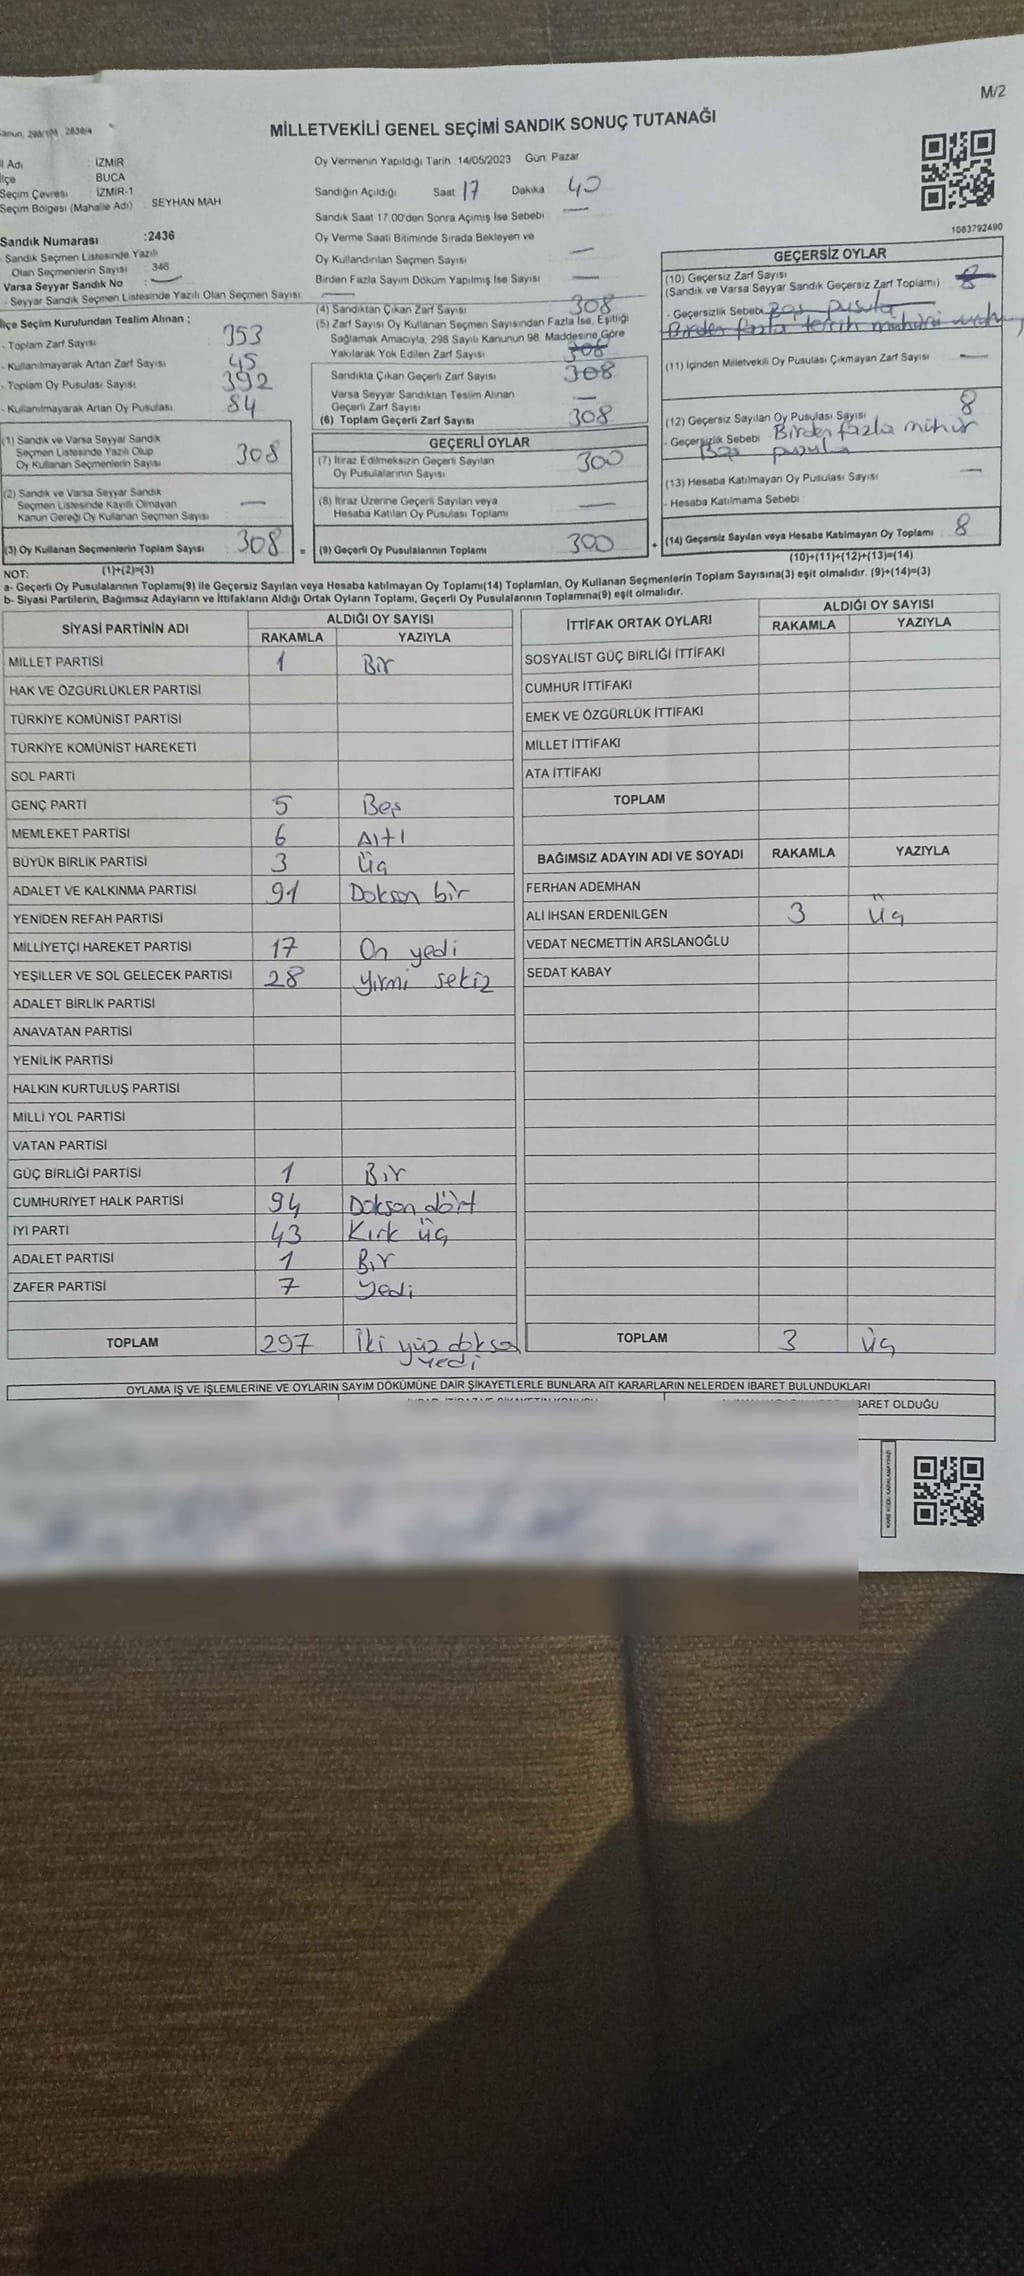 M/2
MİLLETVEKİLİ GENEL SEÇİMİ SANDIK SONUÇ TUTANAĞI
İZMİR
İlçe BUCA
Seçim Çevresi İZMİR-1
Seçim Bölgesi (Mahalle Adı) : SEYHAN MAH
Sandık Numarası :2436
- Sandık Seçmen Listesinde Yazılı
Olan Seçmenlerin Sayısı : 346
Varsa Seyyar Sandık No : —
- Seyyar Sandık Seçmen Listesinde Yazılı Olan Seçmen Sayısı : —
İlçe Seçim Kurulundan Teslim Alınan ;
- Toplam Zarf Sayısı 353
- Kullanılmayarak Artan Zarf Sayısı 45
- Toplam Oy Pusulası Sayısı 392
- Kullanılmayarak Artan Oy Pusulası 84
(1) Sandık ve Varsa Seyyar Sandık
Seçmen Listesinde Yazılı Olup
Oy Kullanan Seçmenlerin Sayısı 308
(2) Sandık ve Varsa Seyyar Sandık
Seçmen Listesinde Kayıtlı Olmayan
Kanun Gereği Oy Kullanan Seçmen Sayısı —
(3) Oy Kullanan Seçmenlerin Toplam Sayısı 308 =
Oy Vermenin Yapıldığı Tarih 14/05/2023 Gün: Pazar
Sandığın Açıldığı Saat 17 Dakika 40
Sandık Saat 17.00'den Sonra Açılmış İse Sebebi —
Oy Verme Saati Bitiminde Sırada Bekleyen ve
Oy Kullandırılan Seçmen Sayısı —
Birden Fazla Sayım Döküm Yapılmış İse Sayısı —
(4) Sandıktan Çıkan Zarf Sayısı 308
(5) Zarf Sayısı Oy Kullanan Seçmen Sayısından Fazla İse, Eşitliği
Sağlamak Amacıyla, 298 Sayılı Kanunun 98. Maddesine Göre
Yakılarak Yok Edilen Zarf Sayısı 308
Sandıkta Çıkan Geçerli Zarf Sayısı 308
Varsa Seyyar Sandıktan Teslim Alınan
Geçerli Zarf Sayısı —
(6) Toplam Geçerli Zarf Sayısı 308
GEÇERLİ OYLAR
(7) İtiraz Edilmeksizin Geçerli Sayılan
Oy Pusulalarının Sayısı 300
(8) İtiraz Üzerine Geçerli Sayılan veya
Hesaba Katılan Oy Pusulası Toplamı —
(9) Geçerli Oy Pusulalarının Toplamı 300 +
1083792490
GEÇERSİZ OYLAR
(10) Geçersiz Zarf Sayısı 8
(Sandık ve Varsa Seyyar Sandık Geçersiz Zarf Toplamı)
- Geçersizlik Sebebi Boş pusula
Birden fazla tercih mühürü
(11) İçinden Milletvekili Oy Pusulası Çıkmayan Zarf Sayısı —
(12) Geçersiz Sayılan Oy Pusulası Sayısı 8
- Geçersizlik Sebebi Birden fazla mühür
Boş pusula
(13) Hesaba Katılmayan Oy Pusulası Sayısı —
- Hesaba Katılmama Sebebi
(14) Geçersiz Sayılan veya Hesaba Katılmayan Oy Toplamı 8
(1)+(2)=(3)
(10)+(11)+(12)+(13)=(14)
NOT:
a- Geçerli Oy Pusulalarının Toplamı(9) ile Geçersiz Sayılan veya Hesaba katılmayan Oy Toplamı(14) Toplamları, Oy Kullanan Seçmenlerin Toplam Sayısına(3) eşit olmalıdır. (9)+(14)=(3)
b- Siyasi Partilerin, Bağımsız Adayların ve İttifakların Aldığı Ortak Oyların Toplamı, Geçerli Oy Pusulalarının Toplamına(9) eşit olmalıdır.
SİYASİ PARTİNİN ADI ALDIĞI OY SAYISI
RAKAMLA YAZIYLA
MİLLET PARTİSİ 1 Bir
HAK VE ÖZGÜRLÜKLER PARTİSİ
TÜRKİYE KOMÜNİST PARTİSİ
TÜRKİYE KOMÜNİST HAREKETİ
SOL PARTİ
GENÇ PARTİ 5 Beş
MEMLEKET PARTİSİ 6 Altı
BÜYÜK BİRLİK PARTİSİ 3 Üç
ADALET VE KALKINMA PARTİSİ 91 Doksan bir
YENİDEN REFAH PARTİSİ
MİLLİYETÇİ HAREKET PARTİSİ 17 On yedi
YEŞİLLER VE SOL GELECEK PARTİSİ 28 Yirmi sekiz
ADALET BİRLİK PARTİSİ
ANAVATAN PARTİSİ
YENİLİK PARTİSİ
HALKIN KURTULUŞ PARTİSİ
MİLLİ YOL PARTİSİ
VATAN PARTİSİ
GÜÇ BİRLİĞİ PARTİSİ 1 Bir
CUMHURİYET HALK PARTİSİ 94 Doksan dört
İYİ PARTİ 43 Kırk üç
ADALET PARTİSİ 1 Bir
ZAFER PARTİSİ 7 Yedi
TOPLAM 297 İki yüz doksan
yedi
İTTİFAK ORTAK OYLARI ALDIĞI OY SAYISI
RAKAMLA YAZIYLA
SOSYALİST GÜÇ BİRLİĞİ İTTİFAKI
CUMHUR İTTİFAKI
EMEK VE ÖZGÜRLÜK İTTİFAKI
MİLLET İTTİFAKI
ATA İTTİFAKI
TOPLAM
BAĞIMSIZ ADAYIN ADI VE SOYADI RAKAMLA YAZIYLA
FERHAN ADEMHAN
ALİ İHSAN ERDENİLGEN 3 Üç
VEDAT NECMETTİN ARSLANOĞLU
SEDAT KABAY
TOPLAM 3 Üç
OYLAMA İŞ VE İŞLEMLERİNE VE OYLARIN SAYIM DÖKÜMÜNE DAİR ŞİKAYETLERLE BUNLARA AİT KARARLARIN NELERDEN İBARET BULUNDUKLARI
BARET OLDUĞU
KARE KODU KARALAMAYINIZ